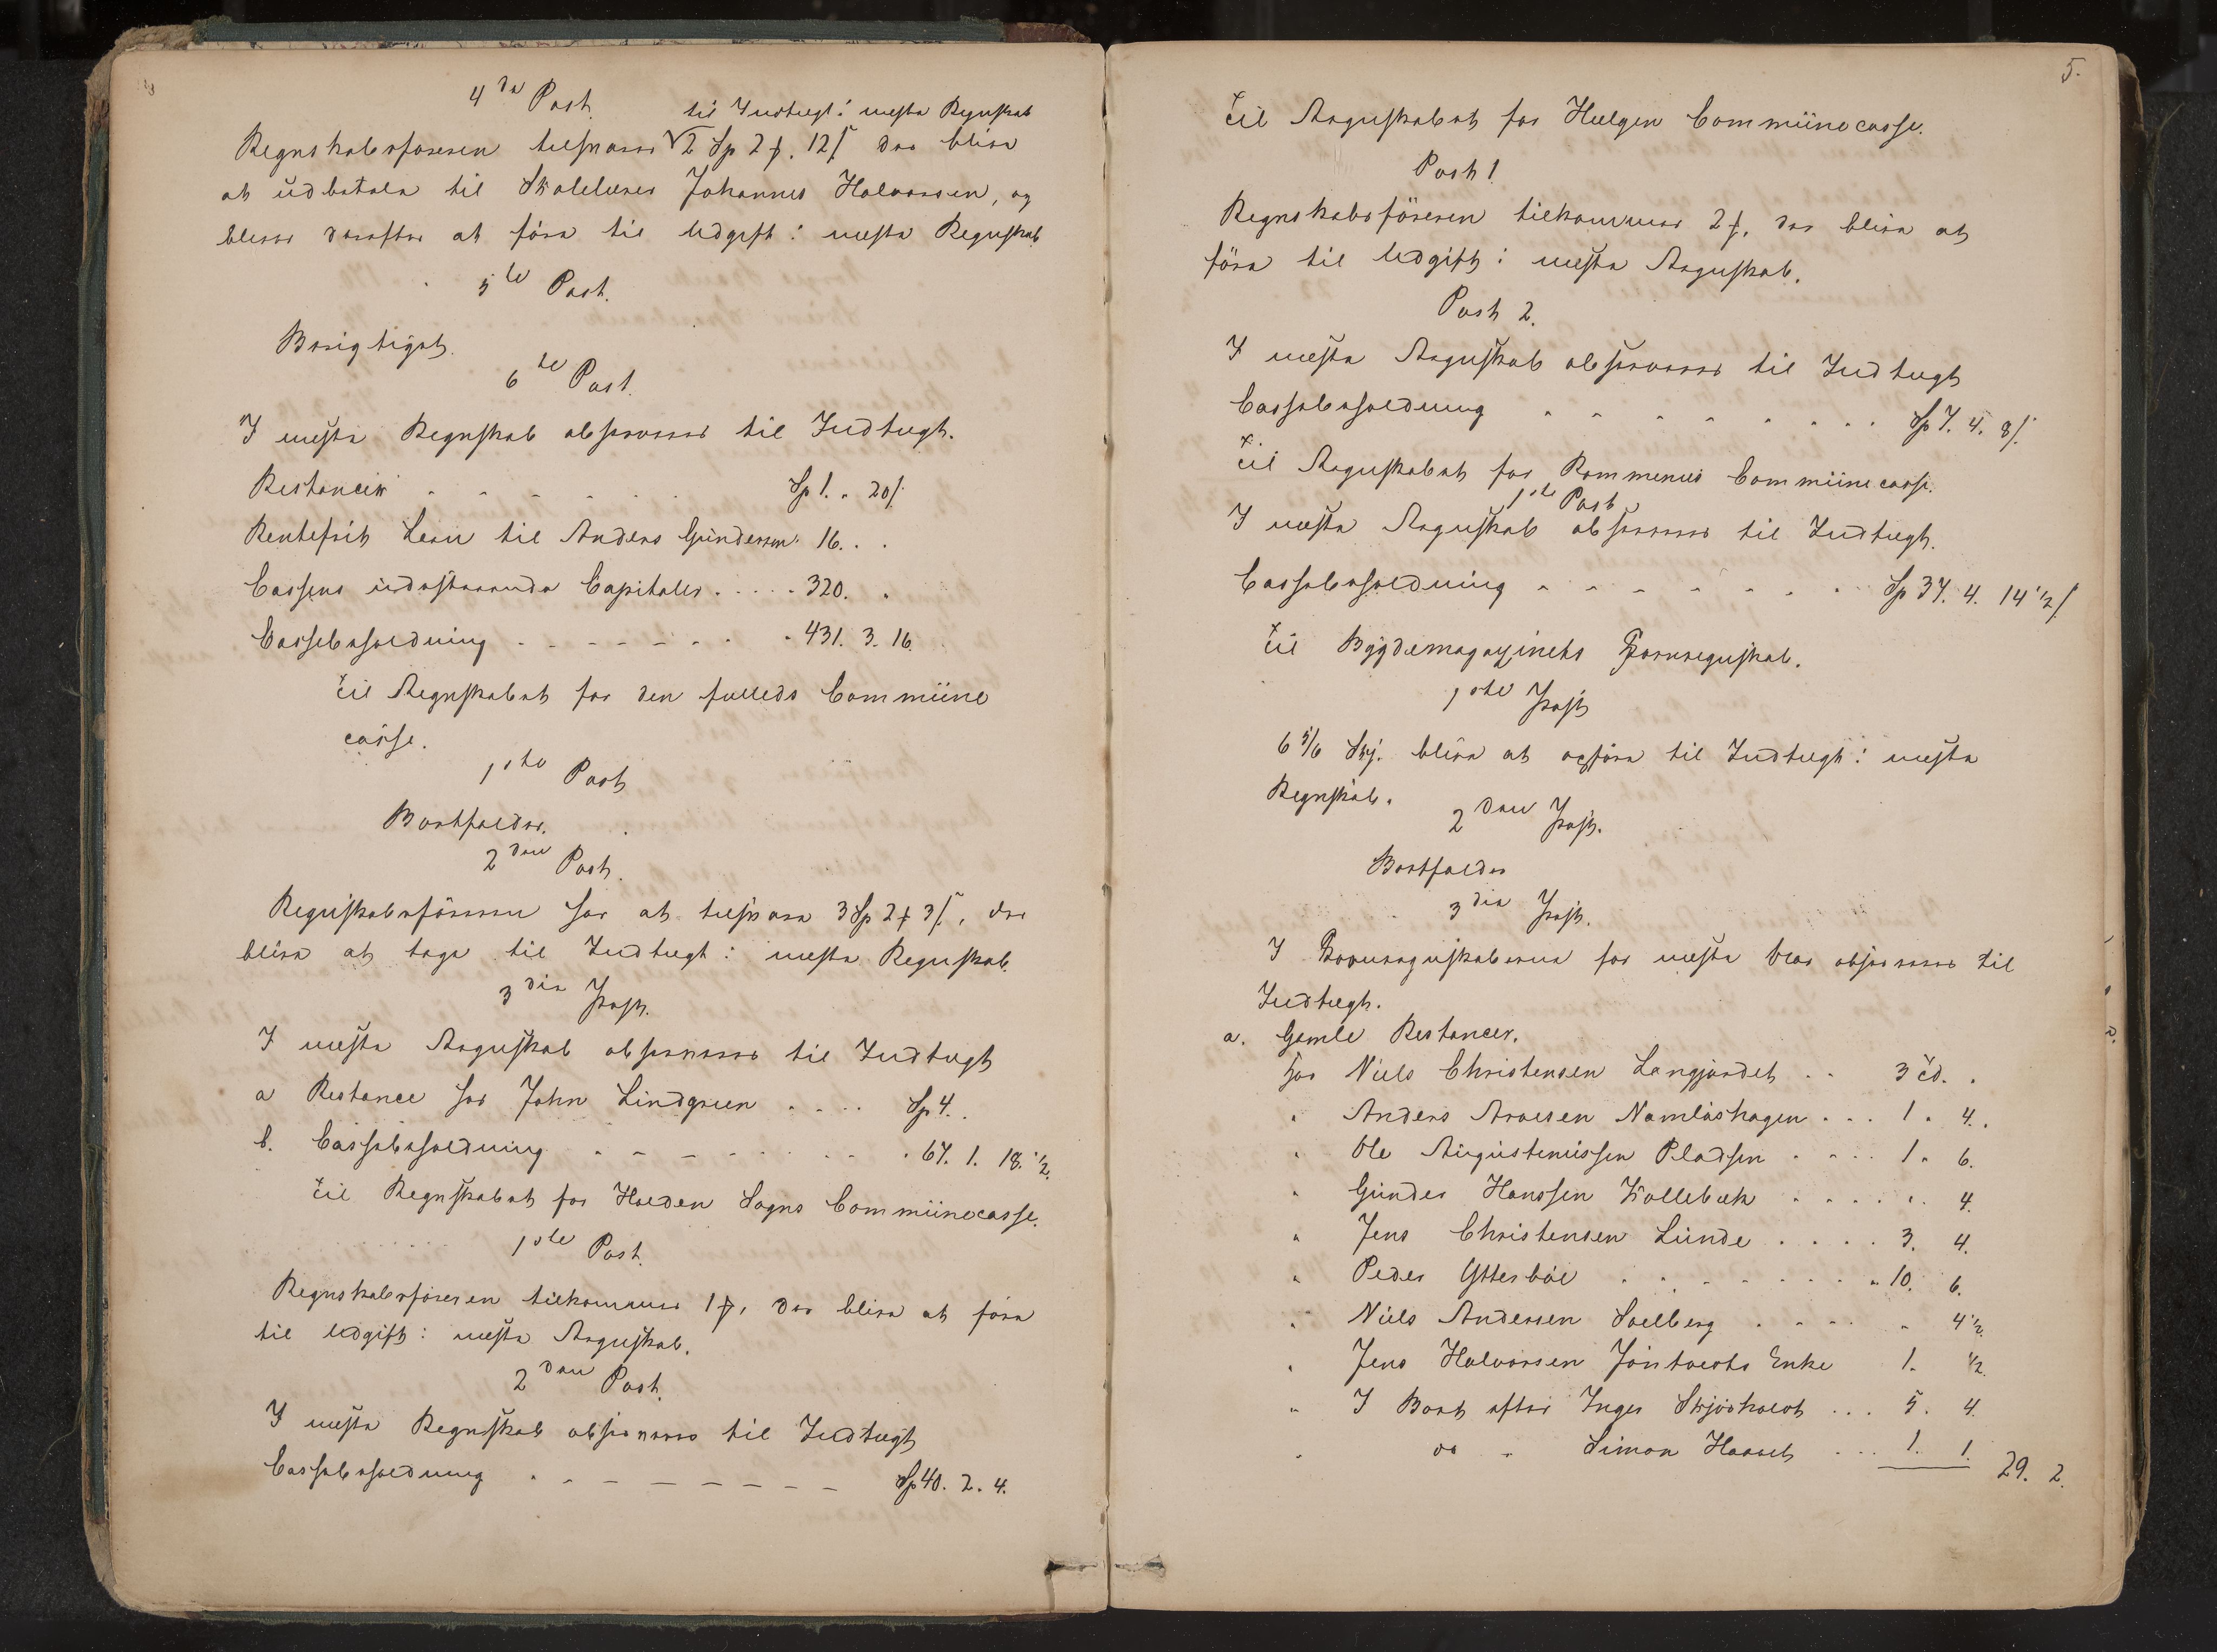 4de Post.
til Indtægt i næste Regnskab
Regnskabsføreren tilsvarer √2 Sp 2 ƒ. 12 ſ der blive
at udbetale til Skolelærer Johannes Halvorsen, og
bliver derefter at føre til Udgift i næste Regnskab
5te Post.
Berigtiget.
6te Post.
I næste Regnskab observeres til Indtægt.
Restancer . . . . . . Sp 1. " 20 ſ.
Rentefrit Laan til Anders Gundersen 16. . .
Cassens udestaaende Capitaler . . . . 320. .
Cassebeholdning . . . . . . . 431. 3. 16.
Til Regnskabet for den fælleds Commune
casse.
1ste Post
Bortfalder.
2den Post.
Regnskabsføreren har at tilsvare 3 Sp 2 ƒ 3 ſ, der
blive at tage til Indtægt i næste Regnskab.
3die Post.
I næste Regnskab observeres til Indtægt
a Restance hos John Lindgreen . . . . Sp 4. .
b. Cassebeholdning . . . . . . . . 67. 1. 18. 1/2.
Til Regnskabet for Holden Sogns Communecasse.
1ste Post.
Regnskabsføreren tilkommer 1 ƒ, der blive at føre
til Udgift i næste Regnskab.
2den Post.
I næste Regnskab observeres til Indtægt
Cassebeholdning . . . . . . . . Sp 40. 2. 4.
5.
Til Regnskabet for Helgen Communecasse.
Post 1.
Regnskabsføreren tilkommer 2 ƒ, der blive at
føre til Udgift i næste Regnskab.
Post 2.
I næste Regnskab observeres til Indtægt
Cassebeholdning . . . . . . . . . Sp 7. 4. 8 ſ.
Til Regnskabet for Rommenes Communecasse.
1ste Post
I næste Regnskab observeres til Indtægt.
Cassebeholdning . . . . . . . . Sp 37. 4. 14 1/2 ſ.
Til Bygdemagazinets Kornregnskab.
1ste Post
6 5/6 Skj. blive at opføre til Indtægt i næste
Regnskab.
2den Post.
Bortfalder
3die Post.
I Kornregnskaberne for næste Aar observeres til
Indtægt.
a. Gamle Restancer.
hos Niels Christensen Langjordet . . 3 td. .
" Anders Arvesen Namløshagen . . . 1. 4. .
" Ole Augustinussen Pladsen . . . . 1. 6.
" Gunder Hanssen Kollebæk . . . . . 4.
" Jens Christensen Lunde . . . . 3. 4.
" Peder Ytterbøe . . . . . . . " 10. 6.
" Niels Andersen Solberg . . . . " 4 1/2.
" Jens Halvorsen Jøntvedts Enke 1. 1/2.
" I Boet efter Inger Skjørholdt . . . 5. 4.
" do " Simon Haaset . . . 1. 1.
29. 2.